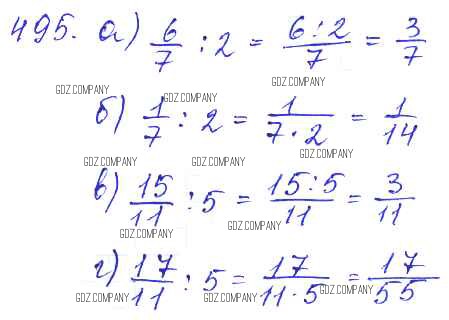 495. а) 6/7 : 2 = 6:2/7 = 3/7
GDZ.COMPANY
GDZ.COMPANY GDZ.COMPANY
б) 1/7 : 2 = 1/7·2 = 1/14
GDZ.COMPANY GDZ.COMPANY GDZ.COMPANY
в) 15/11 : 5 = 15:5/11 = 3/11
GDZ.COMPANY GDZ.COMPANY
г) 17/11 : 5 = 17/11·5 = 17/55
GDZ.COMPANY GDZ.COMPANY GDZ.COMPANY